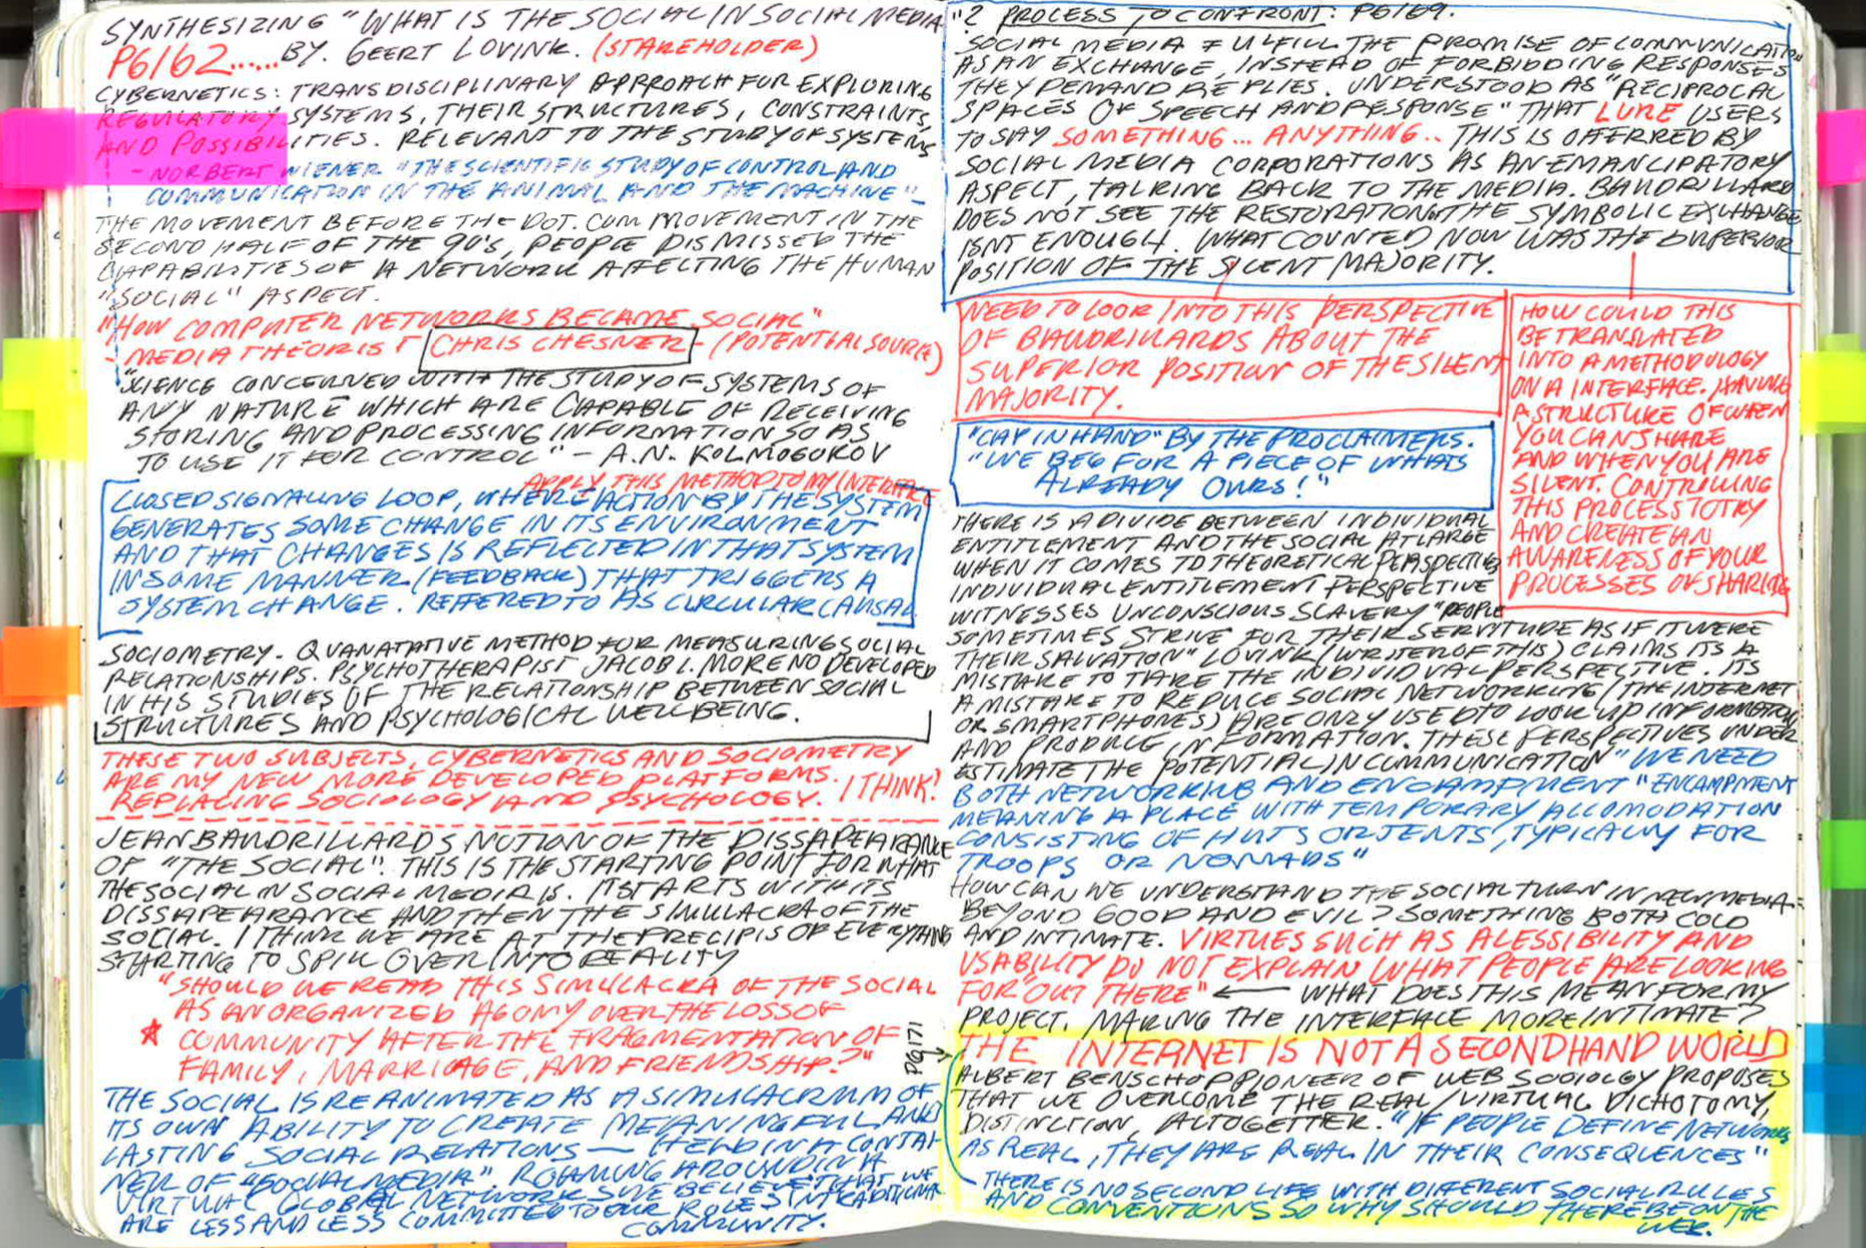 SYNTHESIZING "WHAT IS THE SOCIAL IN SOCIAL MEDIA
PG162...... BY. GEERT LOVINK. (STAKEHOLDER)
CYBERNETICS: TRANSDISCIPLINARY APPROACH FOR EXPLORING
REGULATORY SYSTEMS, THEIR STRUCTURES, CONSTRAINTS,
AND POSSIBILITIES. RELEVANT TO THE STUDY OF SYSTEMS
- NORBERT WIENER "THE SCIENTIFIC STUDY OF CONTROL AND
COMMUNICATION IN THE ANIMAL AND THE MACHINE"
THE MOVEMENT BEFORE THE DOT.COM MOVEMENT IN THE
SECOND HALF OF THE 90'S, PEOPLE DISMISSED THE
CAPABILITIES OF A NETWORK AFFECTING THE HUMAN
"SOCIAL" ASPECT.
"HOW COMPUTER NETWORKS BECAME SOCIAL"
- MEDIA THEORIST CHRIS CHESHER - (POTENTIAL SOURCE)
"SCIENCE CONCERNED WITH THE STUDY OF SYSTEMS OF
ANY NATURE WHICH ARE CAPABLE OF RECEIVING
STORING AND PROCESSING INFORMATION SO AS
TO USE IT FOR CONTROL" - A.N. KOLMOGOROV
APPLY THIS METHOD TO MY INTERFACE
CLOSED SIGNALING LOOP, WHERE ACTION BY THE SYSTEM
GENERATES SOME CHANGE IN ITS ENVIRONMENT
AND THAT CHANGES IS REFLECTED IN THAT SYSTEM
IN SOME MANNER (FEEDBACK) THAT TRIGGERS A
SYSTEM CHANGE. REFFERED TO AS CIRCULAR CAUSAL
SOCIOMETRY. QUANATATIVE METHOD FOR MEASURING SOCIAL
RELATIONSHIPS. PSYCHOTHERAPIST JACOB L. MORENO DEVELOPED
IN HIS STUDIES OF THE RELATIONSHIP BETWEEN SOCIAL
STRUCTURES AND PSYCHOLOGICAL WELLBEING.
THESE TWO SUBJECTS, CYBERNETICS AND SOCIOMETRY
ARE MY NEW MORE DEVELOPED PLATFORMS. I THINK!
REPLACING SOCIOLOGY AND PSYCHOLOGY.
JEAN BAUDRILLARDS NOTION OF THE DISSAPEARANCE
OF "THE SOCIAL". THIS IS THE STARTING POINT FOR WHAT
THE SOCIAL IN SOCIAL MEDIA IS. IT STARTS WITH ITS
DISSAPEARANCE AND THEN THE SIMULACRA OF THE
SOCIAL. I THINK WE ARE AT THE PRECIPIS OF EVERYTHING
STARTING TO SPILL OVER INTO REALITY
"SHOULD WE READ THIS SIMULACRA OF THE SOCIAL
AS AN ORGANIZED AGONY OVER THE LOSS OF
COMMUNITY AFTER THE FRAGMENTATION OF
FAMILY, MARRIAGE, AND FRIENDSHIP?"
THE SOCIAL IS REANIMATED AS A SIMULACRUM OF
ITS OWN ABILITY TO CREATE MEANINGFUL AND
LASTING SOCIAL RELATIONS - HELD IN A CONTAI
NER OF "SOCIAL MEDIA". ROAMING AROUND IN A
VIRTUAL GLOBAL NETWORK WE BELIEVE THAT WE
ARE LESS AND LESS COMMITTED TO OUR ROLES IN TRADITIONAL
COMMUNITY.
"? PROCESS TO CONFRONT: PG169.
SOCIAL MEDIA FULFILL THE PROMISE OF COMMUNICATION
AS AN EXCHANGE, INSTEAD OF FORBIDDING RESPONSES
THEY DEMAND REPLIES. UNDERSTOOD AS "RECIPROCAL
SPACES OF SPEECH AND RESPONSE" THAT LURE USERS
TO SAY SOMETHING... ANYTHING.. THIS IS OFFERRED BY
SOCIAL MEDIA CORPORATIONS AS AN EMANCIPATORY
ASPECT, TALKING BACK TO THE MEDIA. BAUDRILLARD
DOES NOT SEE THE RESTORATION OF THE SYMBOLIC EXCHANGE
ISNT ENOUGH. WHAT COUNTED NOW WAS THE SUPERIOR
POSITION OF THE SILENT MAJORITY.
NEED TO LOOK INTO THIS PERSPECTIVE
OF BAUDRILLARDS ABOUT THE
SUPERIOR POSITION OF THE SILENT
MAJORITY.
HOW COULD THIS
BE TRANSLATED
INTO A METHODOLOGY
ON A INTERFACE. HAVING
A STRUCTURE OF WHEN
YOU CAN SHARE
AND WHEN YOU ARE
SILENT. CONTROLLING
THIS PROCESS TO TRY
AND CREATE AN
AWARENESS OF YOUR
PROCESSES OF SHARING
"CAP IN HAND" BY THE PROCLAIMERS.
"WE BEG FOR A PIECE OF WHATS
ALREADY OURS!"
THERE IS A DIVIDE BETWEEN INDIVIDUAL
ENTITLEMENT AND THE SOCIAL AT LARGE
WHEN IT COMES TO THEORETICAL PERSPECTIVES
INDIVIDUAL ENTITLEMENT PERSPECTIVE
WITNESSES UNCONSCIOUS SLAVERY "PEOPLE
SOMETIMES STRIVE FOR THEIR SERVITUDE AS IF IT WERE
THEIR SALVATION" LOVINK (WRITER OF THIS) CLAIMS ITS A
MISTAKE TO TAKE THE INDIVIDUAL PERSPECTIVE. ITS
A MISTAKE TO REDUCE SOCIAL NETWORKING (THE INTERNET
OR SMARTPHONES) ARE ONLY USED TO LOOK UP INFORMATION
AND PRODUCE INFORMATION. THESE PERSPECTIVES UNDER
ESTIMATE THE POTENTIAL IN COMMUNICATION "WE NEED
BOTH NETWORKING AND ENCAMPMENT" "ENCAMPMENT
MEANING A PLACE WITH TEMPORARY ALLOMODATION
CONSISTING OF HUTS OR TENTS, TYPICALLY FOR
TROOPS OR NOMADS"
HOW CAN WE UNDERSTAND THE SOCIAL TURN IN NEW MEDIA
BEYOND GOOD AND EVIL? SOMETHING BOTH COLD
AND INTIMATE. VIRTUES SUCH AS ALESSIBILITY AND
USABILITY DO NOT EXPLAIN WHAT PEOPLE ARE LOOKING
FOR "OUT THERE" ← WHAT DOES THIS MEAN FOR MY
PROJECT. MAKING THE INTERFACE MORE INTIMATE?
PG171
THE INTERNET IS NOT A SECONDHAND WORLD
ALBERT BENSCHOP PIONEER OF WEB SOCIOLGY PROPOSES
THAT WE OVERCOME THE REAL/VIRTUAL DICHOTOMY,
DISTINCTION, ALTOGETTER. "IF PEOPLE DEFINE NETWORKS
AS REAL, THEY ARE REAL IN THEIR CONSEQUENCES"
THERE IS NO SECOND LIFE WITH DIFFERENT SOCIAL RULES
AND CONVENTIONS SO WHY SHOULD THERE BE ON THE
WEB.